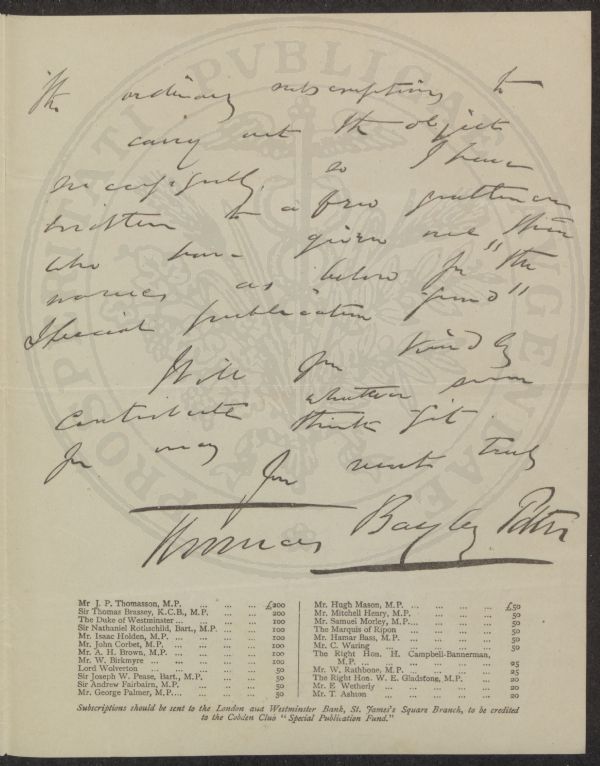 the ordinary subscriptions to
carry out the objects
successfully, so I have
written to a few gentlemen
who have given me their
names as below for "the
Special publication fund"
Will you kindly
contribute whatever sum
you may think fit.
truly
Thomas Bayley Potter
PROSPERITATI PVBLICAE AVGENDAE
Mr J. P. Thomasson, M.P. ... ... ... £200
Sir Thomas Brassey, K.C.B., M.P. ... ... 200
The Duke of Westminster ... ... ... ... 100
Sir Nathaniel Rothschild, Bart., M.P. ... ... 100
Mr. Isaac Holden, M.P. ... ... ... ... 100
Mr. John Corbet, M.P. ... ... ... ... 100
Mr. A. H. Brown, M.P. ... ... ... ... 100
Mr. W. Birkmyre ... ... ... ... ... 100
Lord Wolverton ... ... ... ... ... 50
Sir Joseph W. Pease, Bart., M.P. ... ... 50
Sir Andrew Fairbairn, M.P. ... ... ... 50
Mr. George Palmer, M.P.... ... ... ... 50
Mr. Hugh Mason, M.P. ... ... ... ... £50
Mr. Mitchell Henry, M.P. ... ... ... ... 50
Mr. Samuel Morley, M.P.... ... ... ... 50
The Marquis of Ripon ... ... ... ... 50
Mr. Hamar Bass, M.P. ... ... ... ... 50
Mr. C. Waring ... ... ... ... ... 50
The Right Hon. H. Campbell-Bannerman,
M.P. ... ... ... ... ... ... 25
Mr. W. Rathbone, M.P. ... ... ... ... 25
The Right Hon. W. E. Gladstone, M.P. ... 20
Mr. E Wetherly ... ... ... ... ... 20
Mr. T. Ashton ... ... ... ... ... 20
Subscriptions should be sent to the London and Westminster Bank, St. James's Square Branch, to be credited
to the Cobden Club "Special Publication Fund."